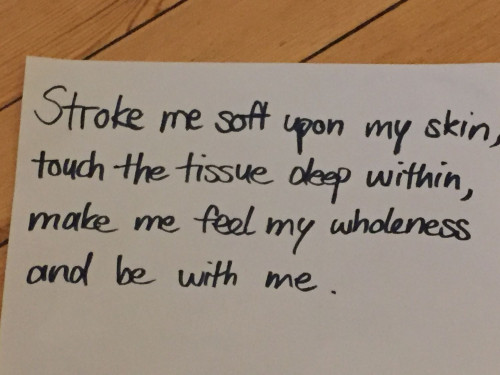 Stroke me soft upon my skin,
touch the tissue deep within,
make me feel my wholeness
and be with me.